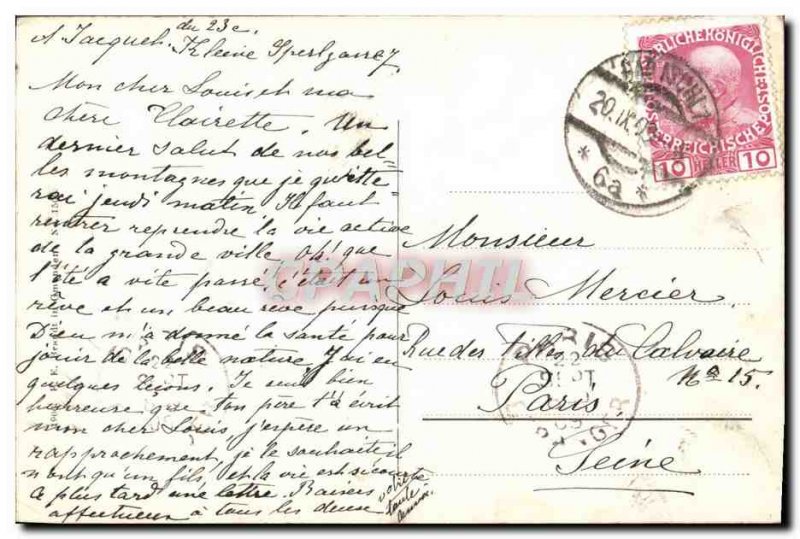 du 23 c.
A Jacquel. Kleine Sperlgasse 7
Mon cher Louis et ma
chère Clairette. Un
dernier salut de nos bel-
les montagnes que je quitte-
rai jeudi matin. Il faut
rentrer reprendre la vie active
de la grande ville. Oh! que
l'été a vite passé, c'était un
rêve et un beau rêve puisque
Dieu m'a donné la santé pour
jouir de la belle nature. J'ai eu
quelques leçons. Je suis bien
heureuse que ton père t'a écrit
mon cher Louis, j'espère un
rapprochement, je le souhaite il
n'ont qu'un fils, et la vie est si courte
A plus tard une lettre. Baisers
affectueux à tous les deux
votre
tante
Monsieur
Louis Mercier
Rue des filles du Calvaire
No 15.
Paris
Seine
KAISERLICHE KÖNIGLICHE
ÖSTERREICHISCHE POST
10 HELLER 10
20.IX.0
* 6a *
PARIS
22
SEPT
CPAPHIL